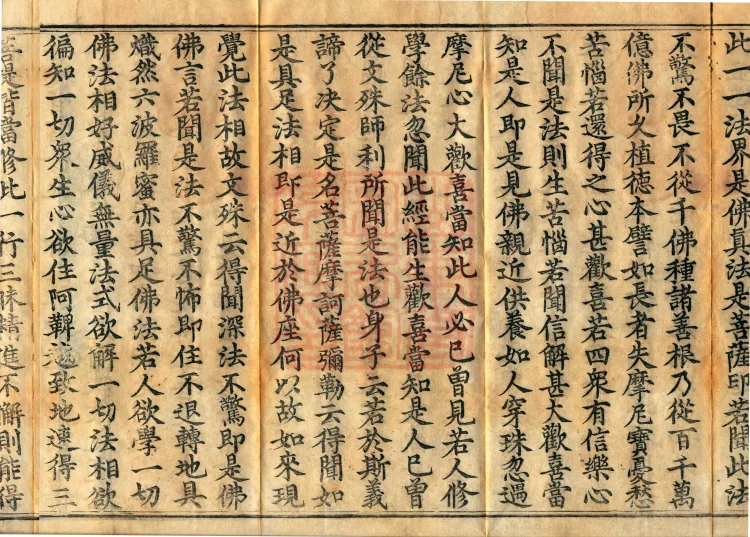 此一一法界是佛真法是菩薩印若聞此法
不驚不畏不從千佛種諸善根乃從百千萬
億佛所久植德本譬如長者失摩尼寶憂愁
苦惱若還得之心甚歡喜若四眾有信樂心
不聞是法則生苦惱若聞信解甚大歡喜當
知是人即是見佛親近供養如人穿珠忽遇
摩尼心大歡喜當知此人必已曾見若人修
學餘法忽聞此經能生歡喜當知是人已曾
從文殊師利所聞是法也身子云若於斯義
諦了决定是名菩薩摩訶薩彌勒云得聞如
是具足法相即是近於佛座何以故如來現
覺此法相故文殊云得聞深法不驚即是佛
佛言若聞是法不驚不怖即住不退轉地具
熾然六波羅蜜亦具足佛法若人欲學一切
佛法相好威儀無量法式欲解一切法相欲
徧知一切眾生心欲住阿鞞䟦致地速得三
菩提皆當修此一行三昧精進不懈則能得